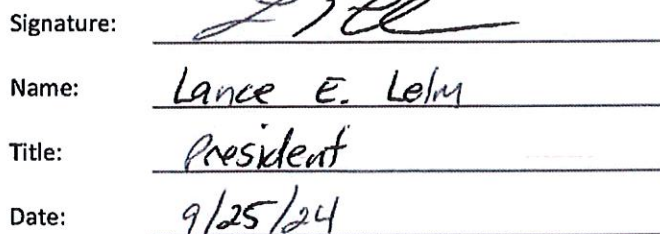 Signature:
Name: Lance E. Lelm
Title: President
Date: 9/25/24